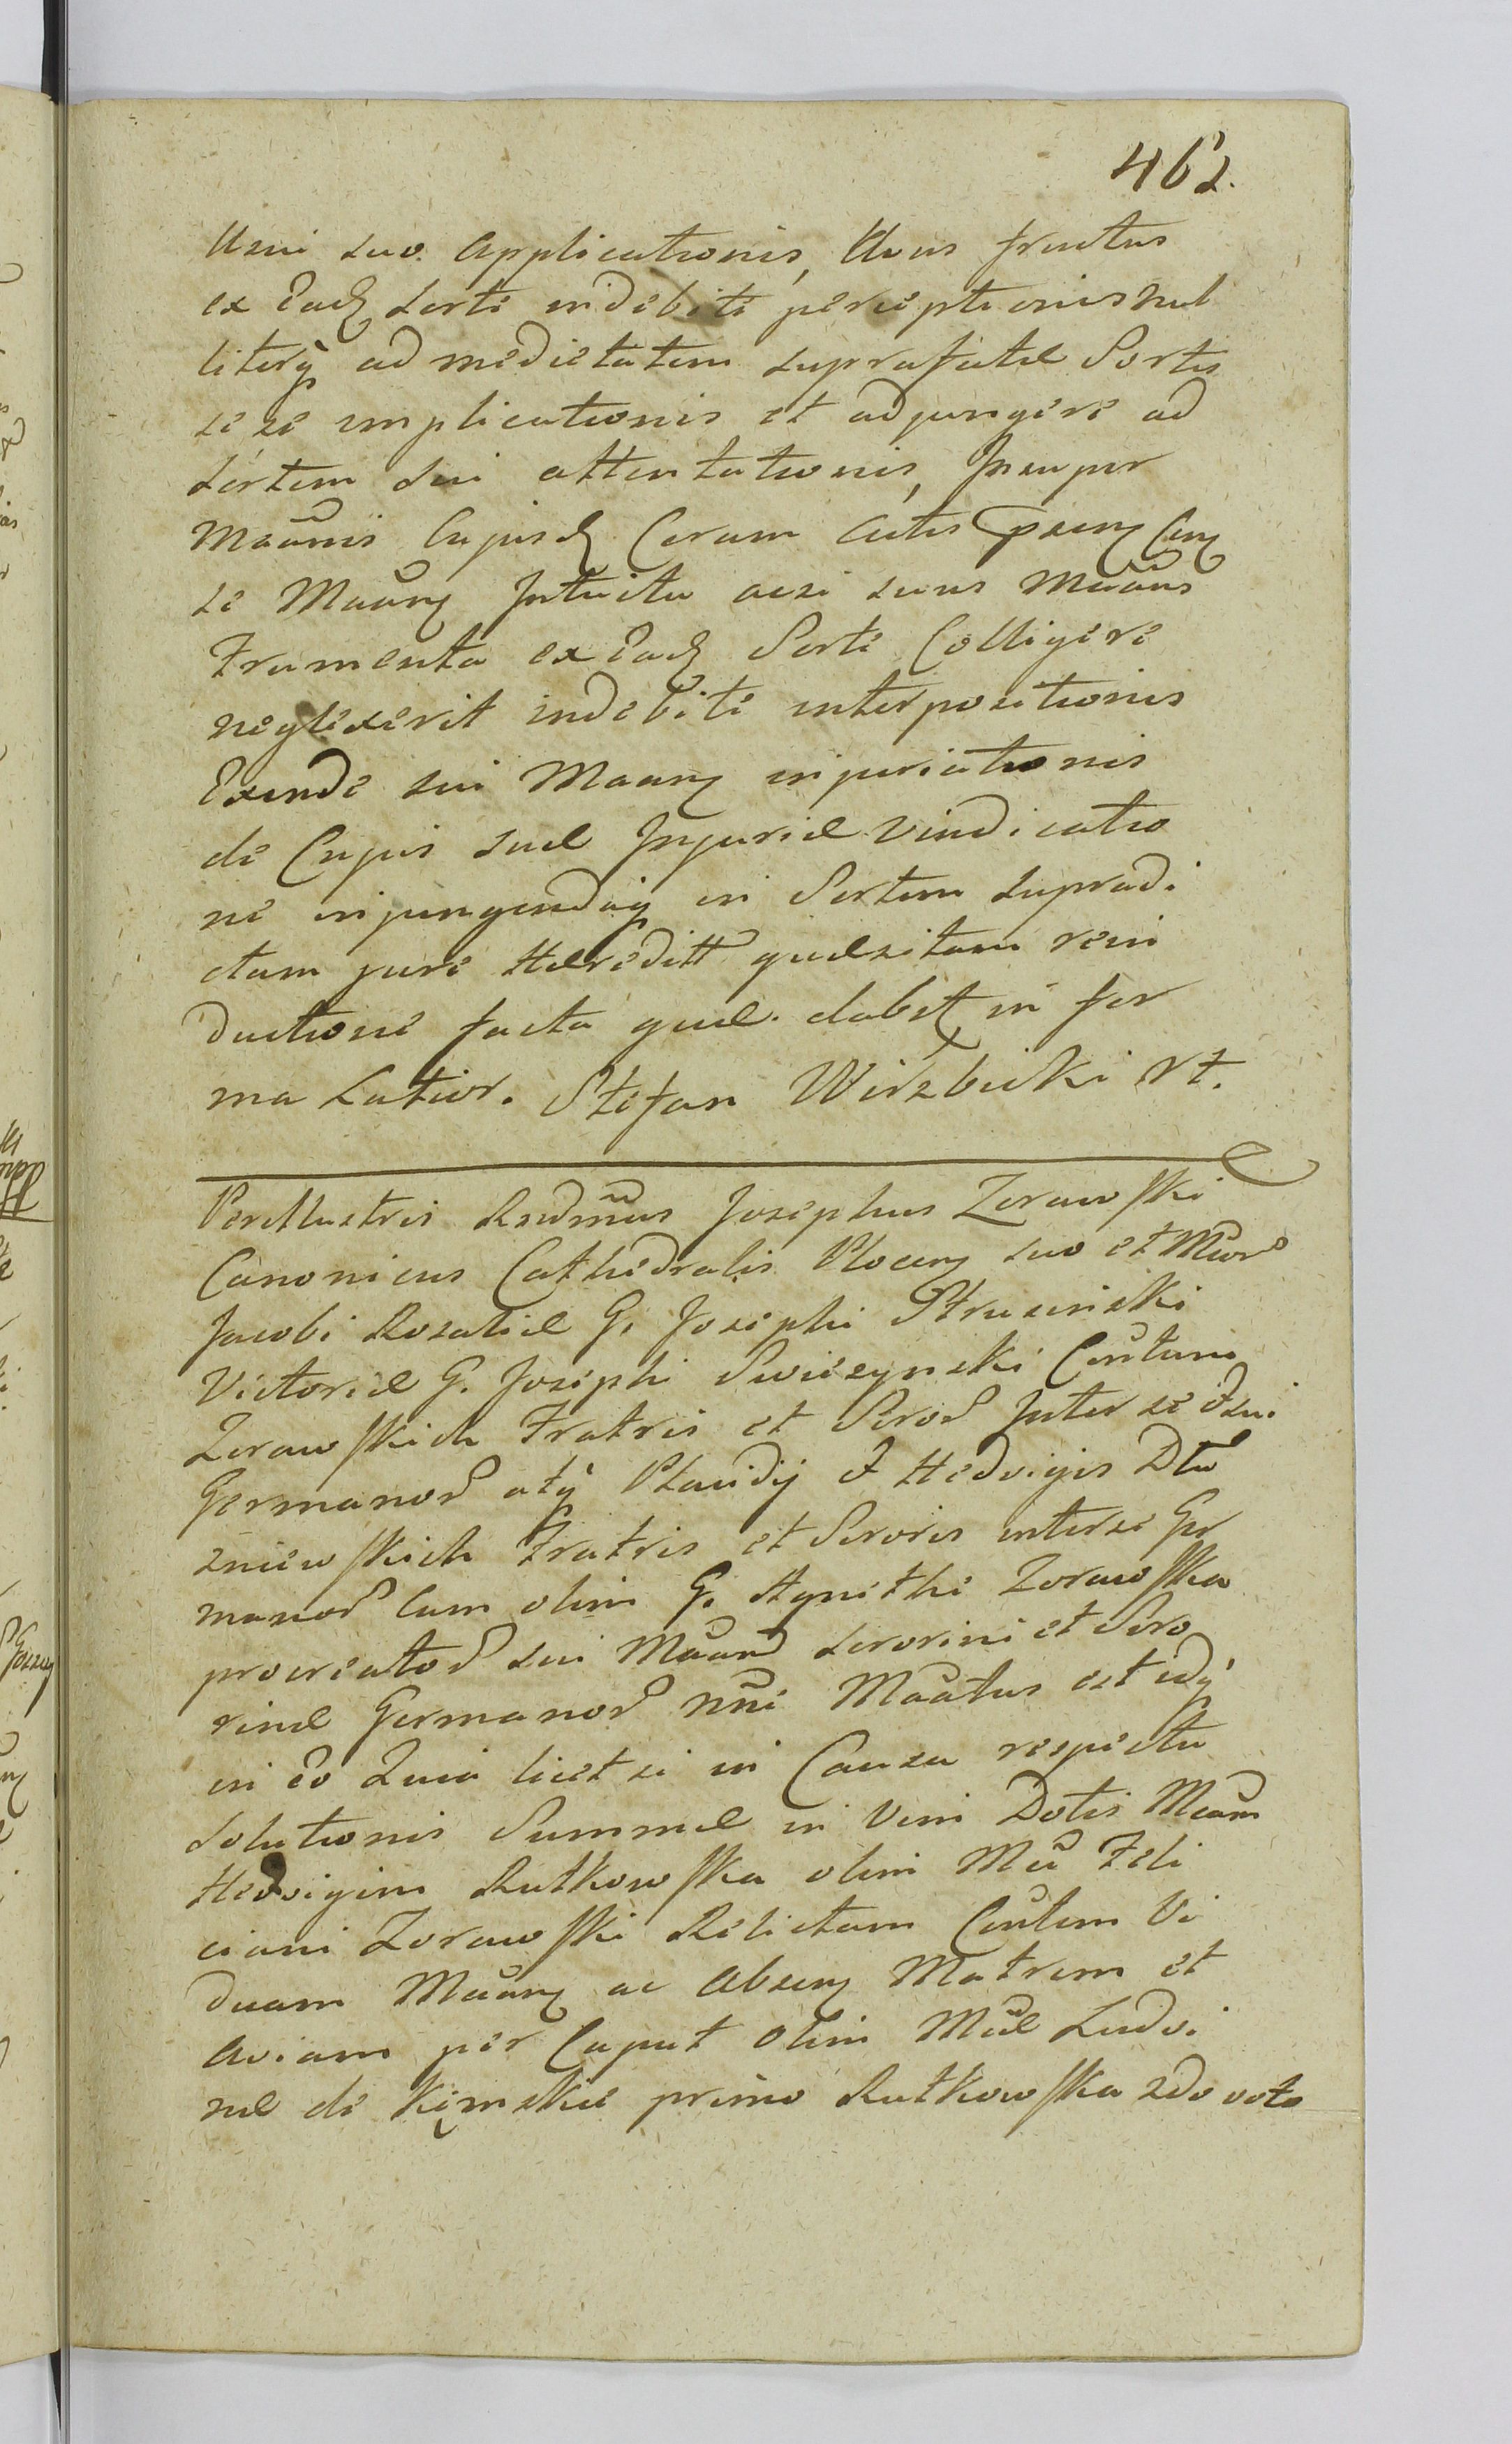 462.
Usui suo applicationis, Usus fructus
ex Eadem Sorte indebite perceptionis nul
literque ad medietatem suprafatae Sortis
se se implicationis et adjungere ad
Sortem sui attentationis, Insuper
Maanis Cujusdem Coram Actis
se Maanem Intuitu acsi suus Maans
Frumenta ex Eadem Sorte Colligere
neglexerit indebite interpositionis
Exinde sui Maanem injuriationis
de Cujus suae Injuriae vindicatio
ne injungendaque in Sortem supradi
ctam jure Haereditt quaesitam rein
ductione facta quae. dabit in for
ma Latior. Stefan Wierzbicki rt.
Perillustris Rndmus Josephus Zorawski
Canonicus Cathedralis Plocen suo et Mwo
Jacobi Rosaliae G. Josephi Strusinski
Victoriae G. Josephi Swiezynski Contum
Zorawskich Fratris et Soror Inter se
Germanor atque Placidij et Hedvigis Dłu
zniewskich Fratris et Sororis inter se Ger
manor cum olim G. Agnethe Zorawska
procreator sui Maan sororini et Soro
rinae Germanor nni Maatus est idque
in eo Quia licet si in Causa respectu
solutionis Summae in vim Dotis Maam
Hedvigim Rutkowska olim Mci Feli
ciani Zorawski Relictam Contem Vi
duam Maanem ac Absem Matrem et
Aviam per Caput olim Mcae Ludvi
nae de primo Rutkowska 2do voto